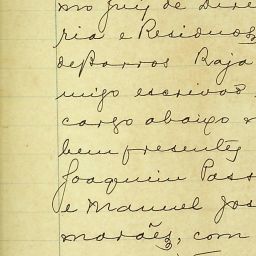 mo Juiz de Dire
ria e Residuos
de Barros Raja
migo escrivão
cargo abaixo
bem presentes
Joaquim Pass
e Manuel Jos
marães, com